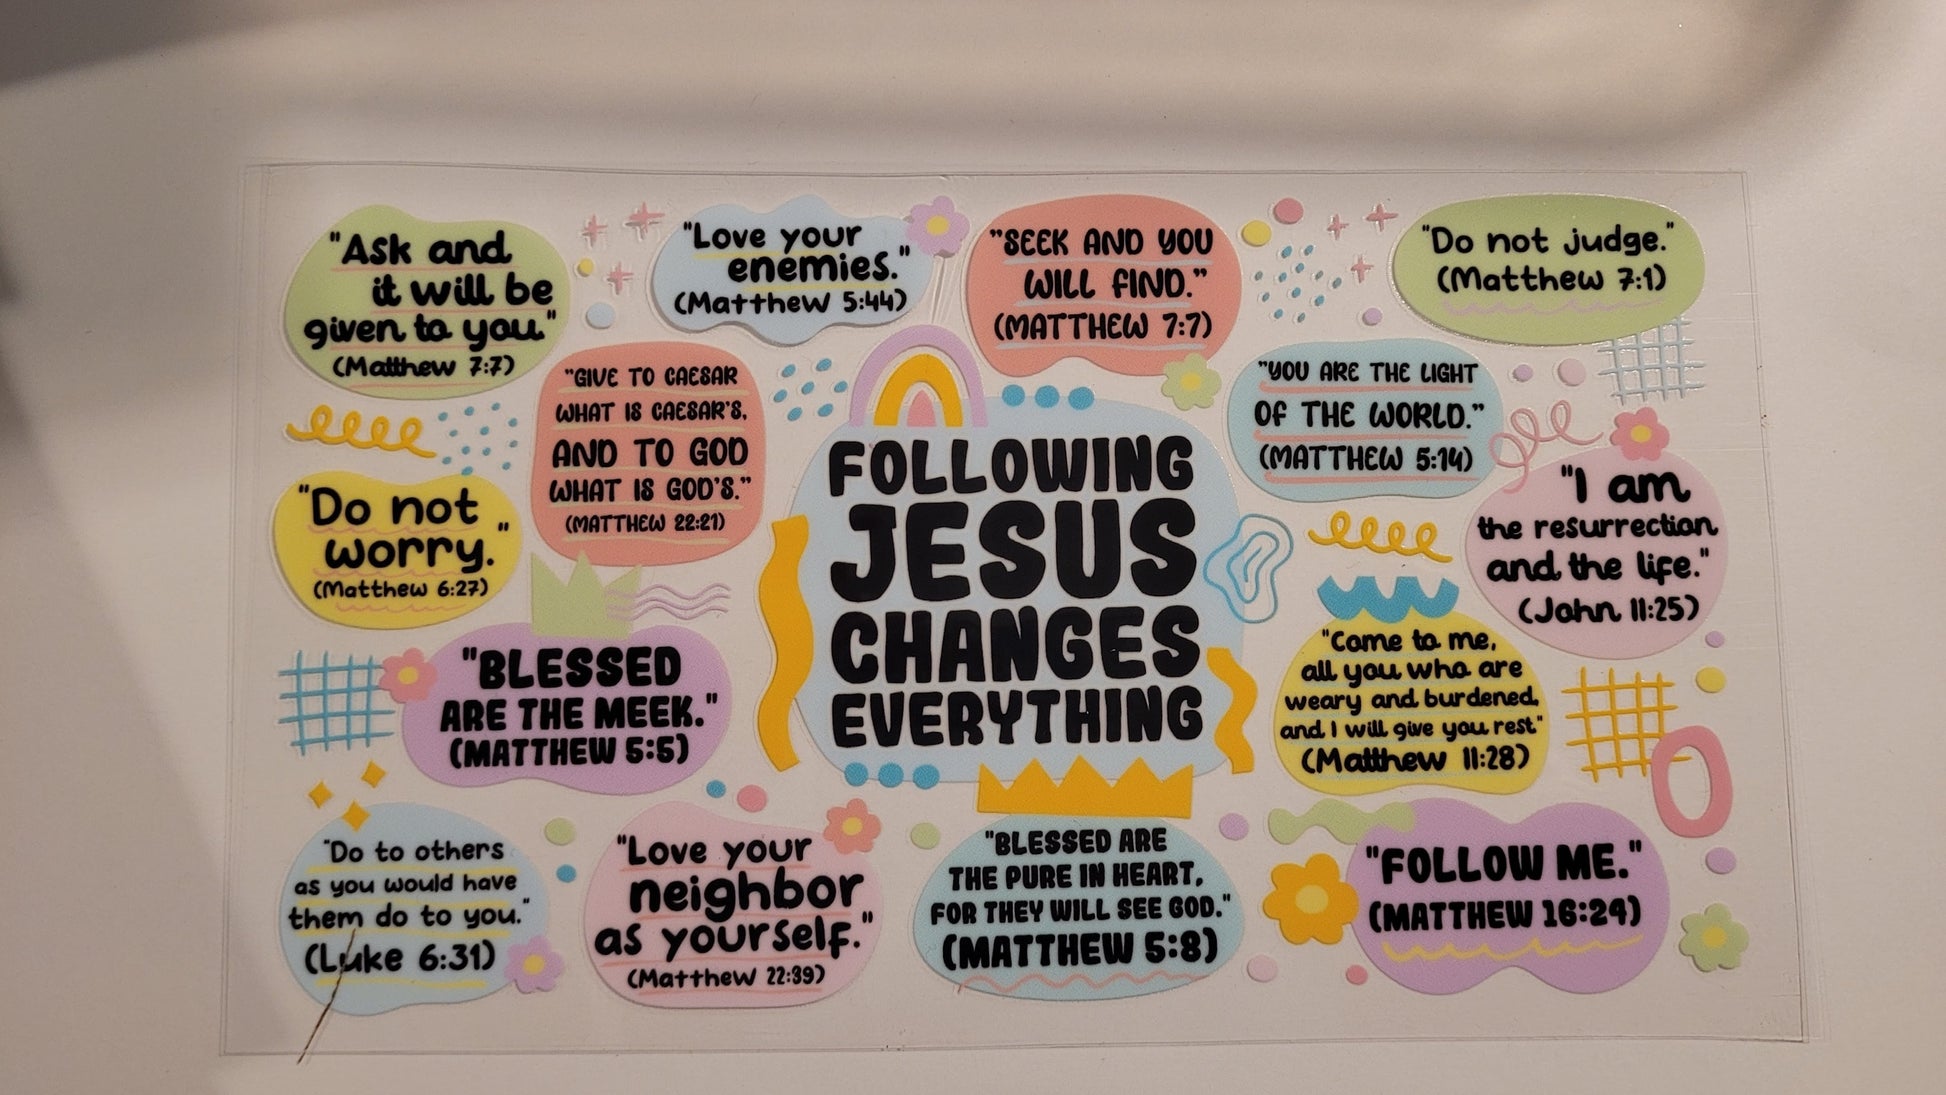 "Ask and
it will be
given to you."
(Matthew 7:7)
"Love your
enemies."
(Matthew 5:44)
"SEEK AND YOU
WILL FIND."
(MATTHEW 7:7)
"Do not judge."
(Matthew 7:1)
"GIVE TO CAESAR
WHAT IS CAESAR'S,
AND TO GOD
WHAT IS GOD'S."
(MATTHEW 22:21)
"YOU ARE THE LIGHT
OF THE WORLD."
(MATTHEW 5:14)
"Do not
worry."
(Matthew 6:27)
FOLLOWING
JESUS
CHANGES
EVERYTHING
"I am
the resurrection
and the life."
(John 11:25)
"BLESSED
ARE THE MEEK."
(MATTHEW 5:5)
"Come to me,
all you who are
weary and burdened,
and I will give you rest"
(Matthew 11:28)
"Do to others
as you would have
them do to you."
(Luke 6:31)
"Love your
neighbor
as yourself."
(Matthew 22:39)
"BLESSED ARE
THE PURE IN HEART,
FOR THEY WILL SEE GOD."
(MATTHEW 5:8)
"FOLLOW ME."
(MATTHEW 16:24)